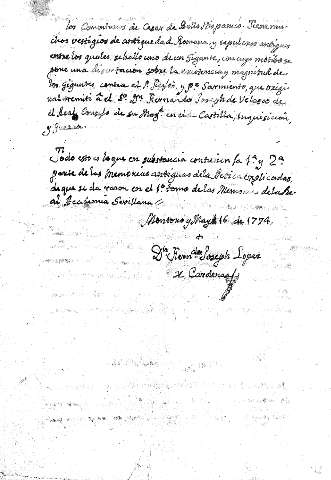 los Comentarios de Cesar de Bello Hispanico. Tiene mu-
chos vestigios de antiguedad Romana, y sepulcros antiguos
entre los quales, se hallo uno de un Gigante, con cuyo motivo se
pone una disertacion sobre la existencia y magnitud de
los Gigantes contra el P. Feijoó, y P.e Sarmiento, que origi-
nal remiti al S.or D.n Fernando Joseph de Velasco de
el Real Consejo de su Mag.d en el de Castilla, Inquisicion,
y Guerra.
Todo esto es lo que en substancia contienen la 1.a y 2.a
parte de las Memorias antiguas de la Betica explicadas,
de que se da razon en el 1.o tomo de las Memorias de la Re-
al Academia Sevillana
Montoro y Mayo 16 de 1774
D.n Fern.do Joseph Lopez
de Cardenas